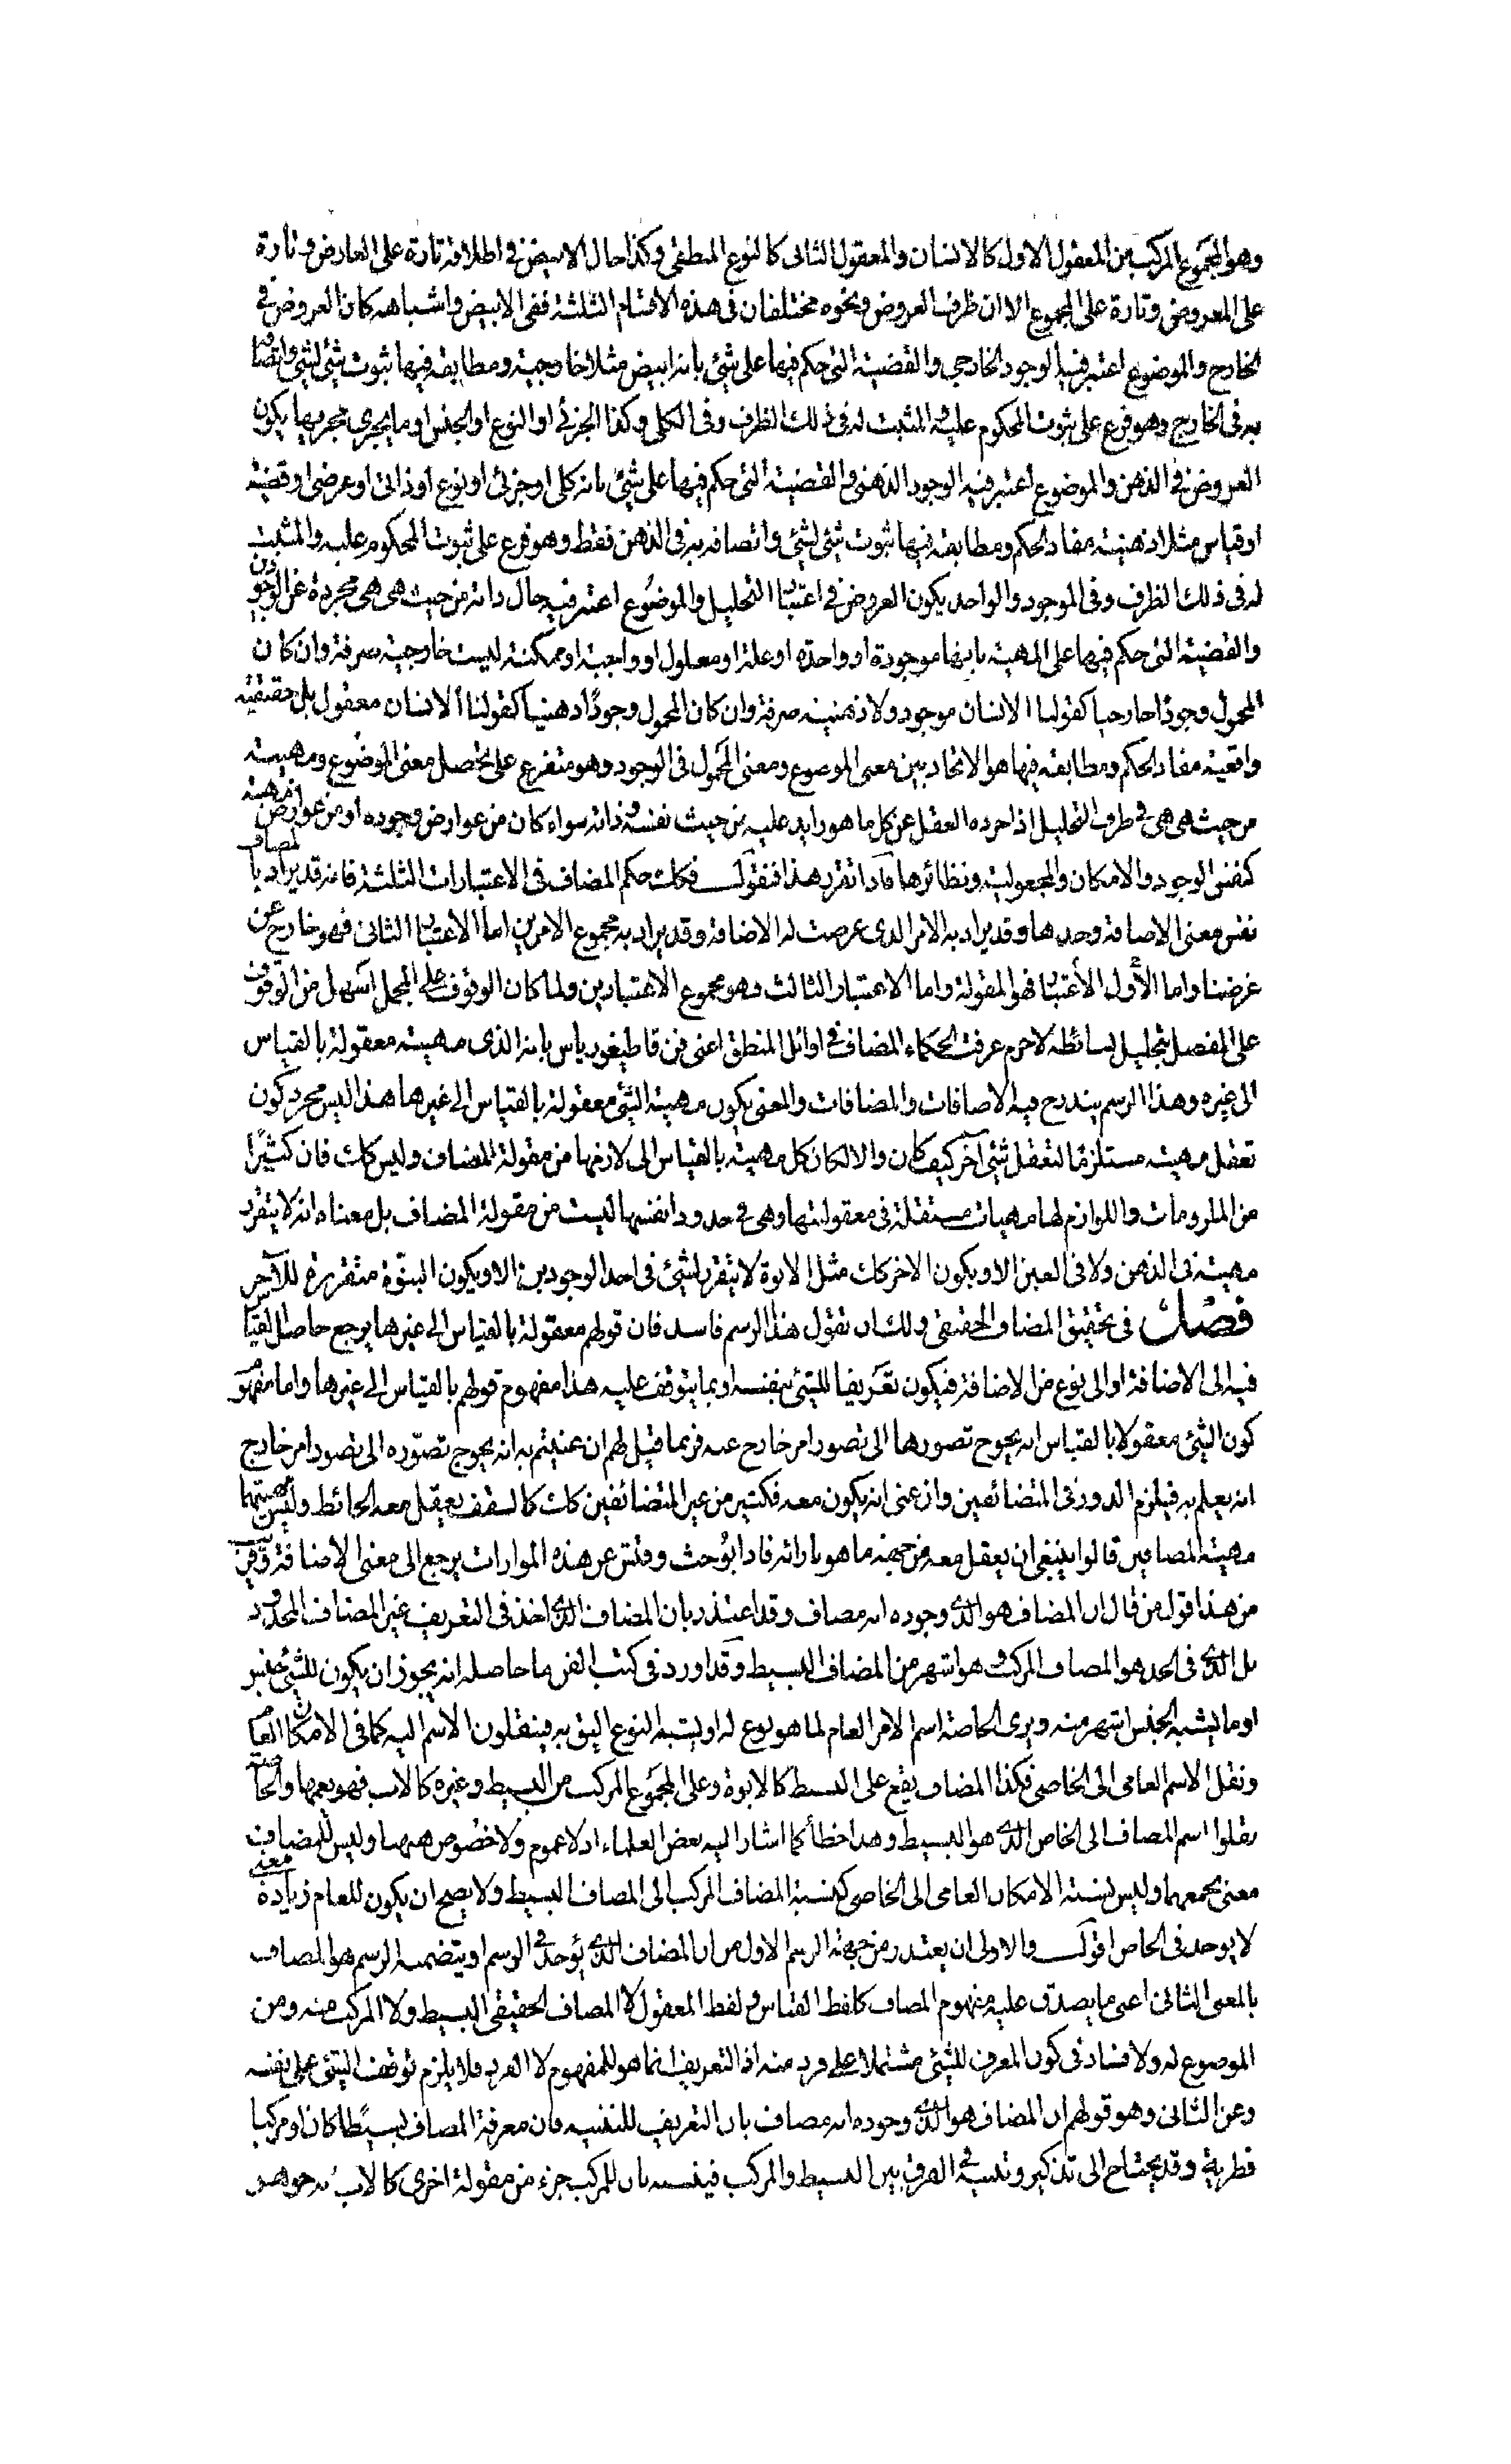 وهو المجموع المركب من المعقول الاول كالانسان والمعقول الثانى كالنوع المنطقى وكذا حال الابيض فى اطلاقه تارة على العارض وتارة
على المعروض وتارة على المجموع الا ان ظرف العروض ونحوه مختلفان فى هذه الاقسام الثلثة ففى الابيض واشباهه كان العروض فى
الخارج والموضوع اعتبر فيه الوجود الخارجى والقضية التى حكم فيها على شئ بانه ابيض مثلا خارجية ومطابقه فيها ثبوت شئ لشئ واتصافه
به فى الخارج وهو فرع على ثبوت المحكوم عليه المثبت له فى ذلك الظرف وفى الكلى وكذا الجزئى او النوع او الجنس او ما يجرى مجريها يكون
العروض فى الذهن والموضوع اعتبر فيه الوجود الذهنى والقضية التى حكم فيها على شئ بانه كلى او جزئى او نوع او ذاتى او عرضى او قضية
او قياس مثلا ذهنية مفاد الحكم ومطابقه فيها ثبوت شئ لشئ واتصافه به فى الذهن فقط وهو فرع على ثبوت المحكوم عليه والمثبت
له فى ذلك الظرف وفى الموجود والواحد يكون العروض فى اعتبار التحليل والموضوع اعتبر فيه حال ذاته من حيث هى هى مجردة عن الوجودين
والقضية التى حكم فيها على المهية بانها موجودة او واحدة او علة او معلول او واجبة او ممكنة ليست خارجية صرفة وان كان
المحمول وجودًا خارجيا كقولنا الانسان موجود ولا ذهنية صرفة وان كان المحمول وجودًا ذهنيا كقولنا الانسان معقول بل حقيقية
واقعية مفاد الحكم ومطابقه فيها هو الاتحاد بين معنى الموضوع ومعنى المحمول فى الوجود وهو متفرع على تحصل معنى الموضوع ومهيته
من حيث هى هى فى ظرف التحليل اذا جرده العقل عن كل ما هو زايد عليه من حيث نفسه وذاته سواء كان من عوارض وجوده او من عوارض مهيته
كنفس الوجود والامكان والمجعولية ونظائرها فاذا تقرر هذا فنقول فكذلك حكم المضاف فى الاعتبارات الثلثة فانه قد يراد بالمضاف
نفس معنى الاضافة وحدها وقد يراد به الامر الذى عرضت له الاضافة وقد يراد به مجموع الامرين اما الاعتبار الثانى فهو خارج عن
غرضنا واما الأول الأعتبار فهو المقولة واما الاعتبار الثالث وهو مجموع الاعتبارين ولما كان الوقوف على المجمل اسهل من الوقوف
على المفصل بتحليل بسائطه لاجرم عرفت الحكماء المضاف فى اوائل المنطق اعنى فن قاطيغورياس بانه الذى مهيته معقولة بالقياس
الى غيره وهذا الرسم يندرج فيه الاضافات والمضافات والمعنى بكون مهية الشئ معقولة بالقياس الى غيرها هذا ليس مجرد كون
تعقل مهيته مستلزمًا لتعقل شئ آخر كيف كان والا لكان كل مهية بالقياس الى لازمها من مقولة المضاف وليس كذلك فان كثيرًا
من الملزومات واللوازم لها مهيات مستقلة فى معقوليتها وهى فى حدود انفسها ليست من مقولة المضاف بل معناه انه لا يتقرر
مهيته فى الذهن ولا فى العين الا ويكون الاخر كذلك مثل الابوة لا يتقرر لشئ فى احد الوجودين الا ويكون البنوّة متقررة للآخر
فصل فى تحقيق المضاف الحقيقى ولك ان تقول هذا الرسم فاسد فان قولهم معقولة بالقياس الى غيرها يرجع حاصل القياس
فيه الى الاضافة او الى نوع من الاضافة فيكون تعريفا للشئ بنفسه او بما يتوقف عليه هذا مفهوم قولهم بالقياس الى غيرها واما مفهوم
كون الشئ معقولا بالقياس انه يحوج تصورها الى تصور امر خارج عنه فربما قيل لهم ان عنيتم به انه يحوج تصوّره الى تصور امر خارج
انه يعلم به فيلزم الدور فى المتضائفين وان عنى انه يكون معه فكثير من غير المتضائفين كذلك كالسقف يعقل معه الحائط وليس مهيتها
مهية المضافين قالوا ينبغى ان يعقل معه من جهة ما هو بازائه فاذا بُوحث وفتش عن هذه الموازات يرجع الى معنى الاضافة وقريب
من هذا قول من قال ان المضاف هو الذى وجوده انه مضاف وقد اعتذر بان المضاف الذى اخذ فى التعريف غير المضاف المحدود
بل الذى فى الحد هو المضاف المركب وهو اشهر من المضاف البسيط وقد اورد فى كتب الفن ما حاصله انه يجوز ان يكون للشئ جنس
او ما يشبه الجنس اشهر منه ويرى الخاصة اسم الامر العام لما هو نوع له او يشبه النوع اليق به فينقلون الاسم اليه كما فى الامكان العام
ونقل الاسم العامى الى الخاصى فكذا المضاف يقع على البسيط كالابوة وعلى المجموع المركب من البسيط وغيره كالاب فهو يعمها والخاصة
نقلوا اسم المضاف الى الخاص الذى هو البسيط وهذا خطأ كما اشار اليه بعض العلماء اذ لا عموم ولا خصوص ههنا وليس للمضاف
معنى يجمعهما وليس نسبة الامكان العامى الى الخاصى كنسبة المضاف المركب الى المضاف البسيط ولا يصح ان يكون للعام زيادة معنى
لا يوجد فى الخاص اقول والاولى ان يعتذر من جهة الرسم الاول من ان المضاف الذى يؤخذ فى الرسم او يتضمنه الرسم هو المضاف
بالمعنى الثانى اعنى ما يصدق عليه مفهوم المضاف كلفظ القياس ولفظ المعقول لا المضاف الحقيقى البسيط ولا المركب منه ومن
الموضوع له ولا فساد فى كون المعرف للشئ مشتملا على فرد منه اذ التعريف انما هو للمفهوم لا الفرد فلا يلزم توقف الشئ على نفسه
وعن الثانى وهو قولهم ان المضاف هو الذى وجوده انه مضاف بان التعريف للتنبيه فان معرفة المضاف بسيطًا كان او مركبا
فطرية وقد يحتاج الى تذكير وتنبيه فى الفرق بين البسيط والمركب فينبه بان للمركب جزء من مقولة اخرى كالاب جوهر